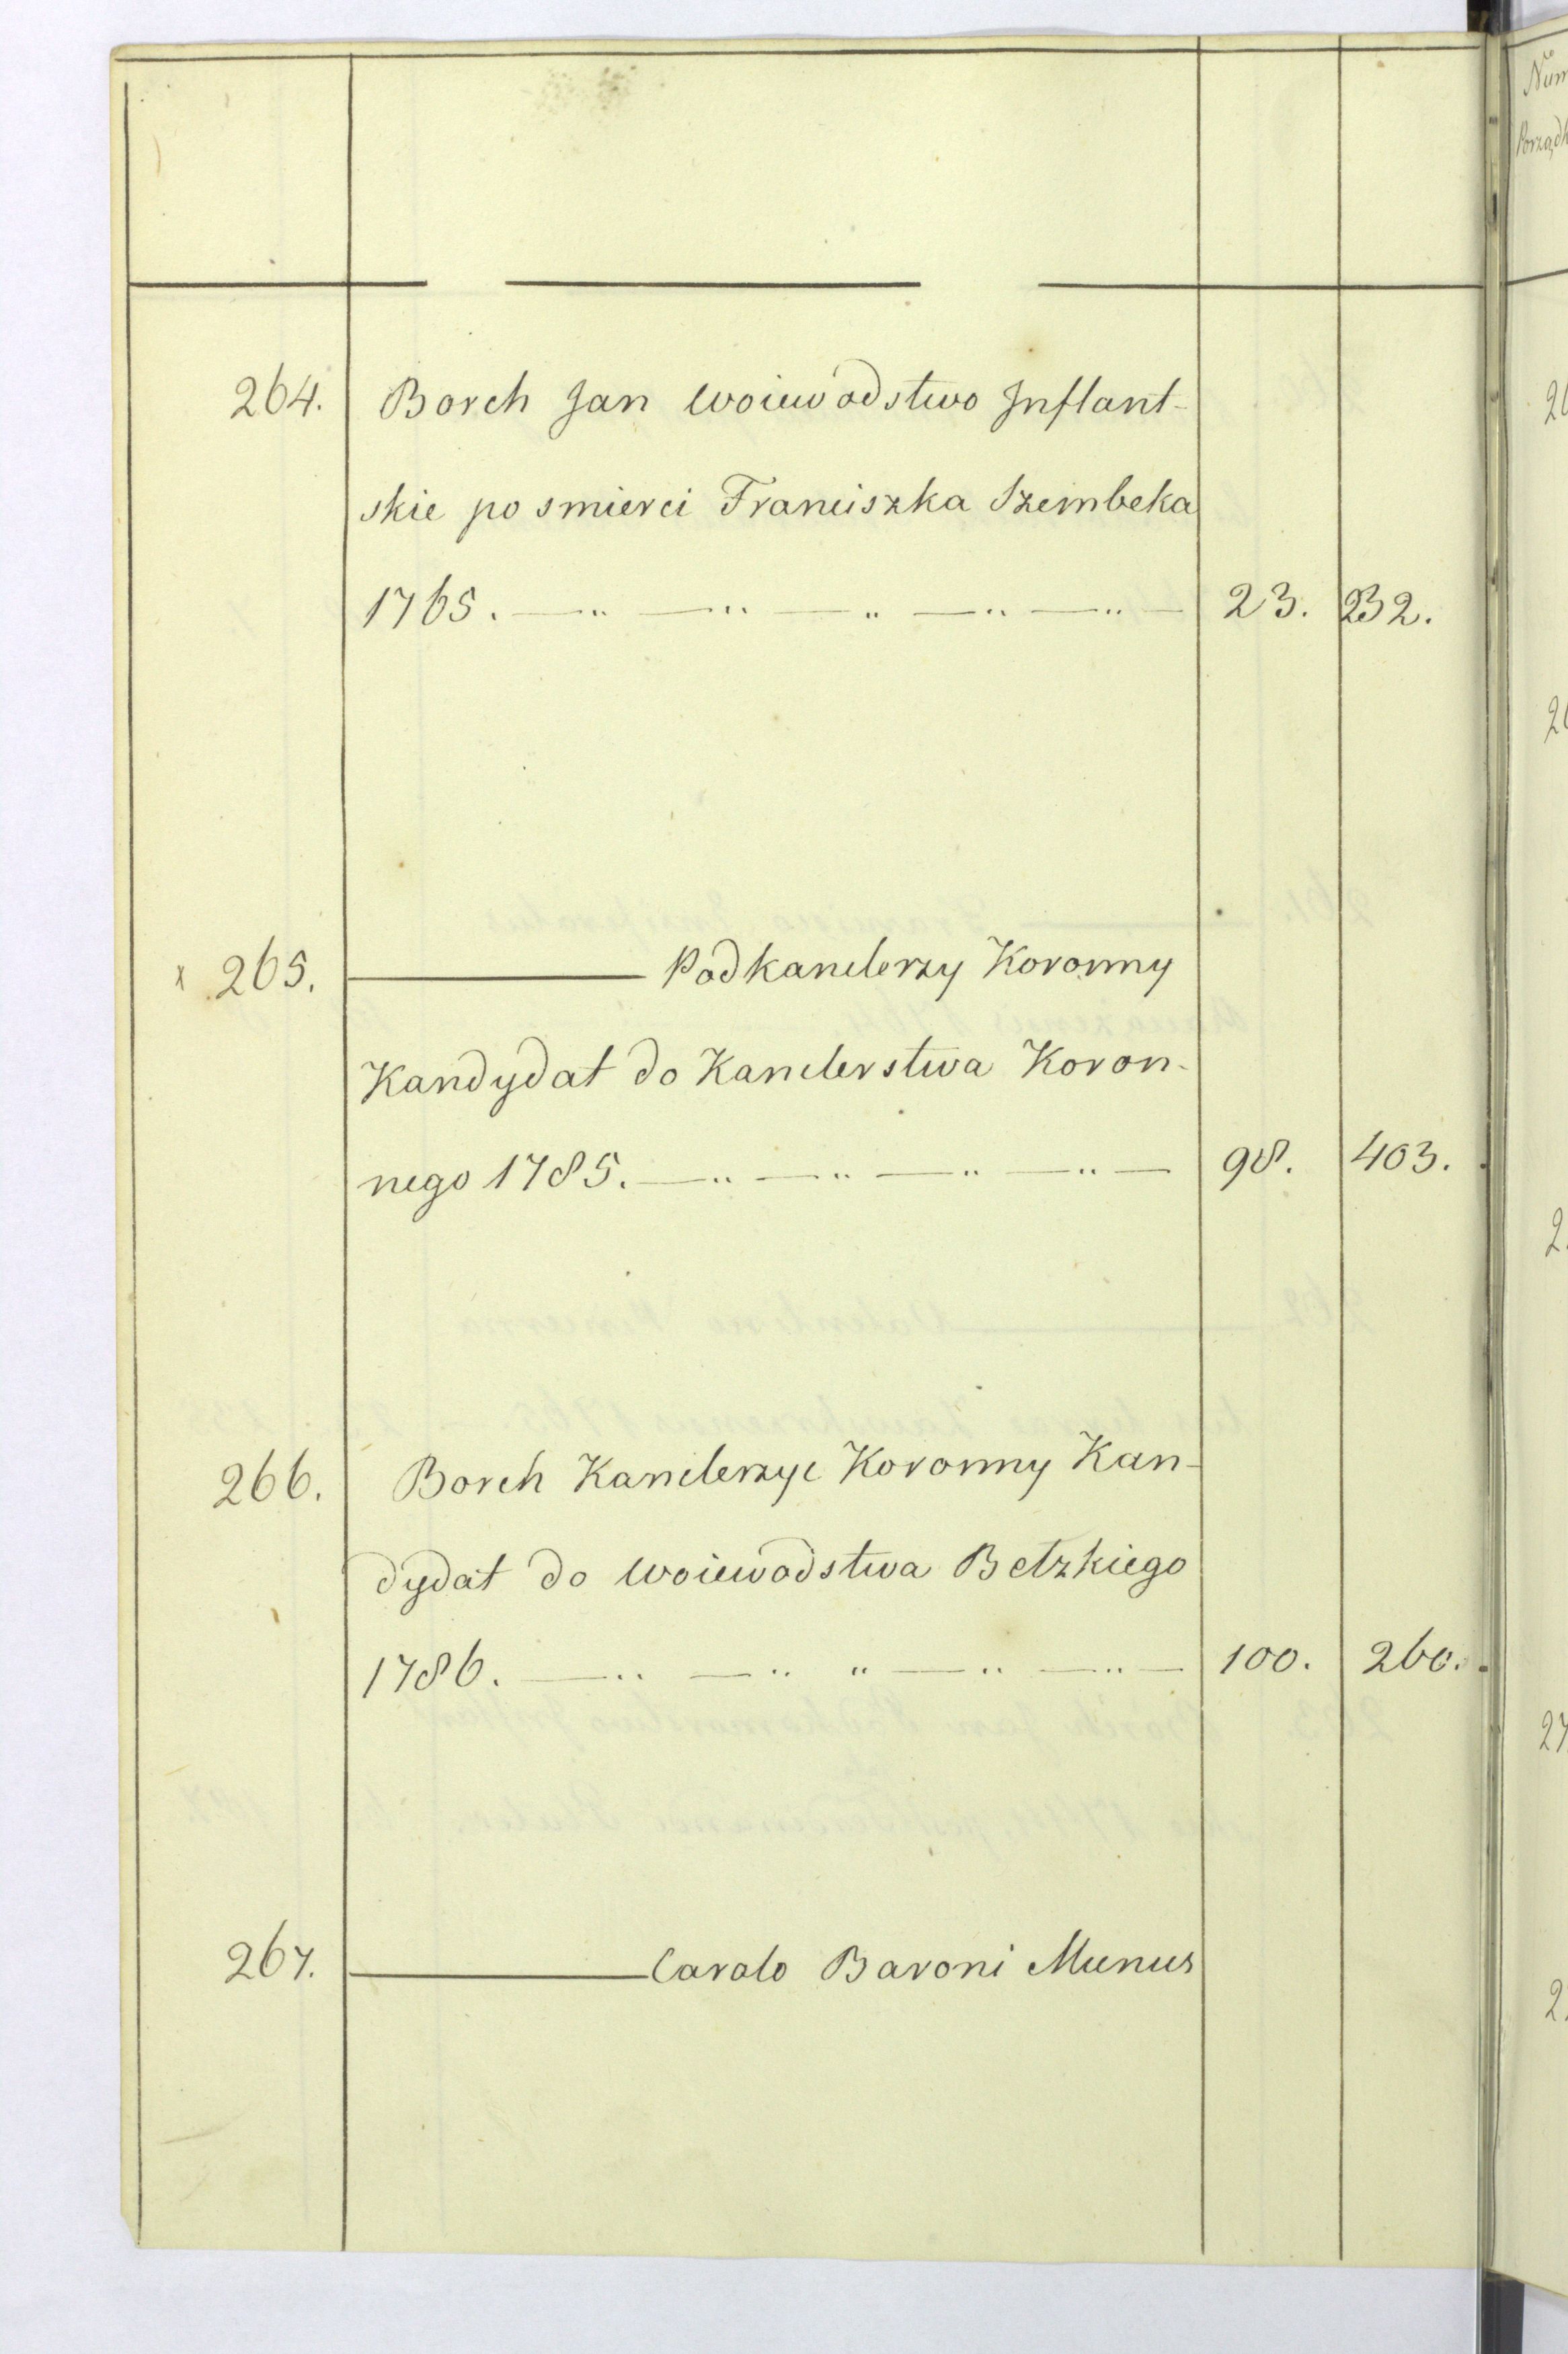 264. Borch Jan Woiewodstwo Inflant-
skie po smierci Franciszka Szembeka
1765. 23. 232.
x 265. Podkanclerzy Koronny
Kandydat do Kanclerstwa Koron-
nego 1785. 98. 403.
266. Borch Kanclerzyc Koronny Kan-
dydat do Woiewodstwa Betzkiego
1786. 100. 260.
267. Carolo Baroni Munus